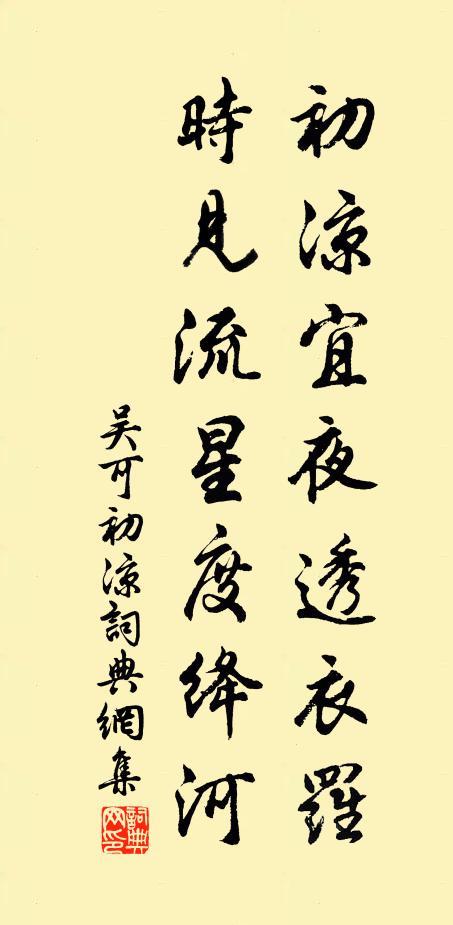 初涼宜夜透衣羅
時見流星度絳河
吳可初涼詞典網集
詞典网印